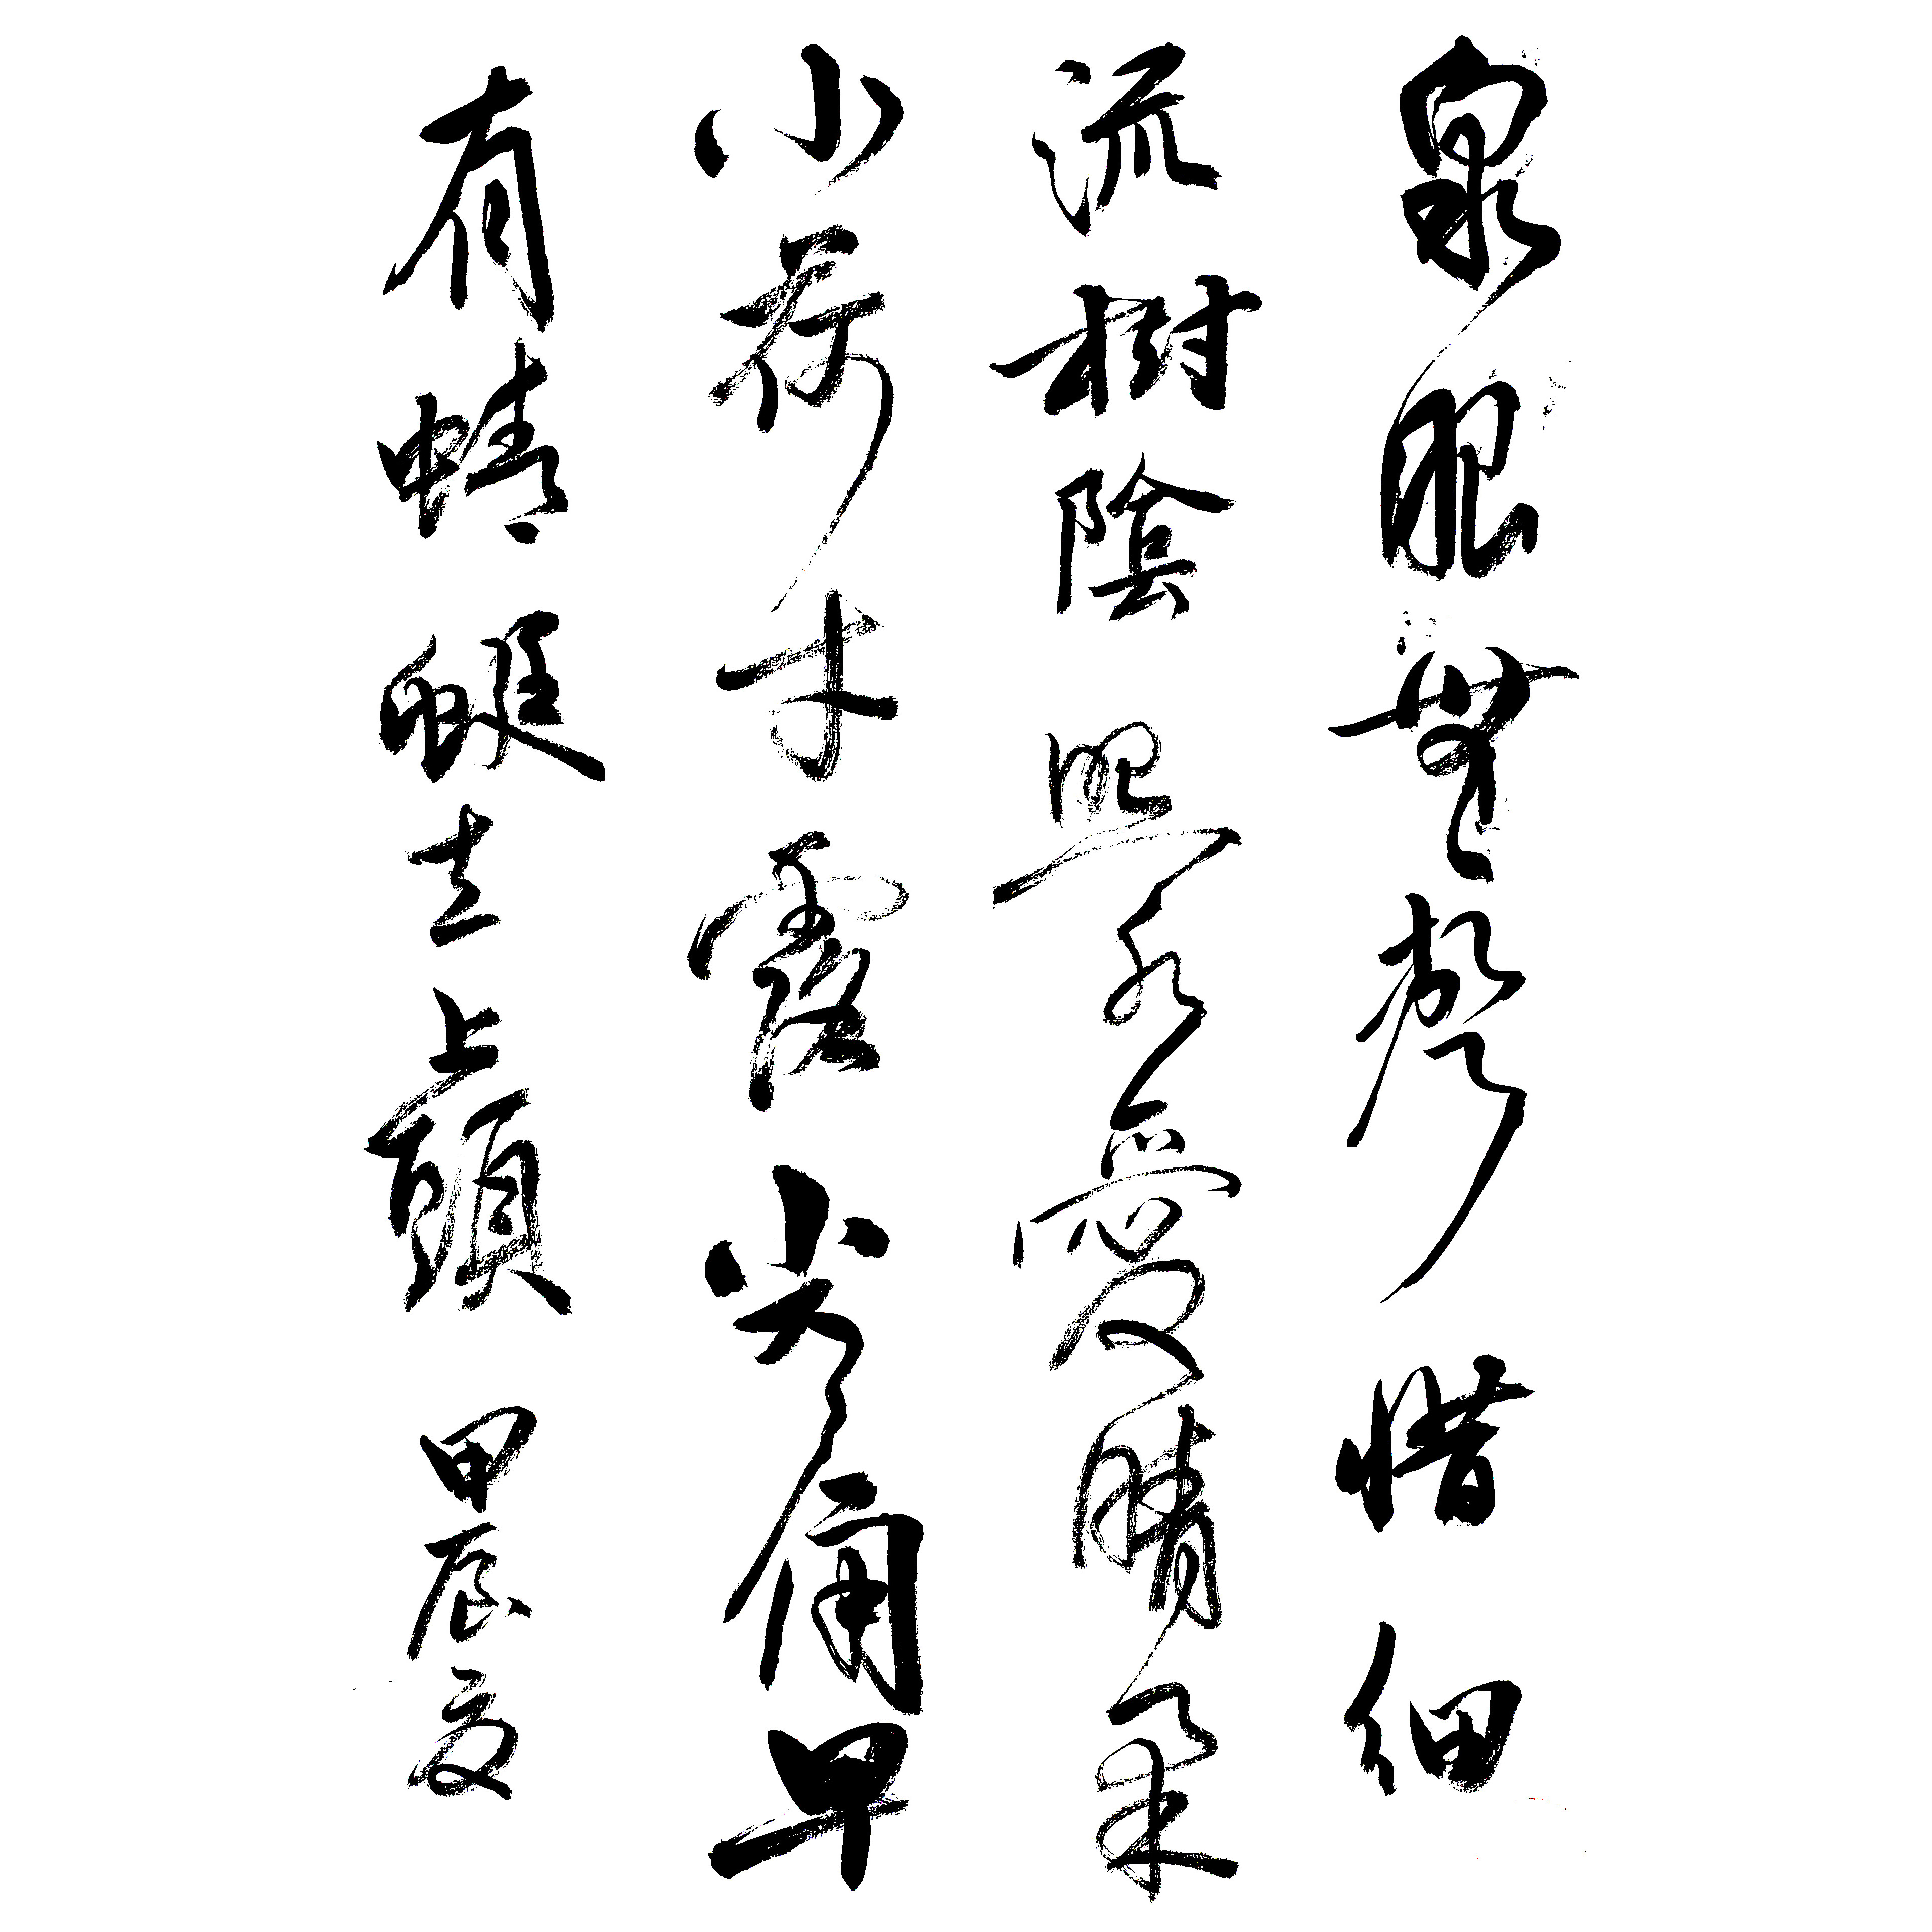 泉眼無聲惜細
流樹陰照水愛晴柔
小荷才露尖々角早
有蜻蜓立上頭 甲辰夏